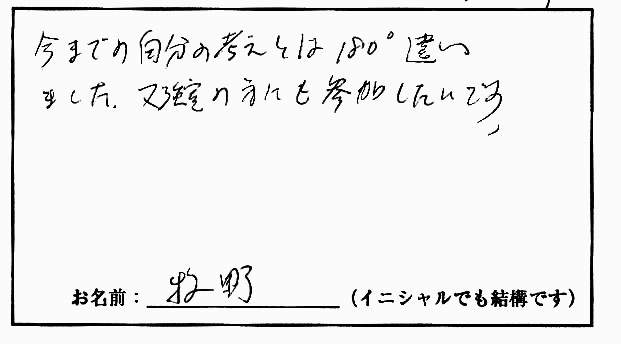 今までの自分の考えとは180°違い
ました。又強室の方にも参加したいです
お名前：牧野（イニシャルでも結構です）